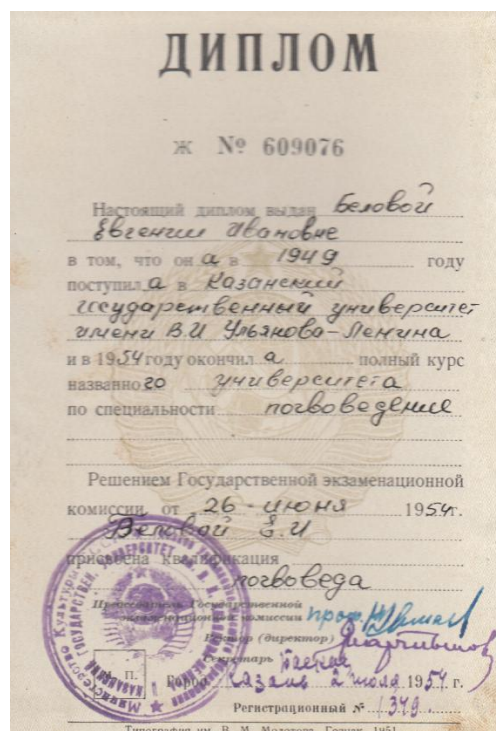 ДИПЛОМ
Ж № 609076
Настоящий диплом выдан Беловой
Евгении Ивановне
в том, что она в 1949 году
поступила в Казанский
государственный университет
имени В.И Ульянова-Ленина
и в 1954 году окончила полный курс
названного университета
по специальности почвоведение
Решением Государственной экзаменационной
комиссии от 26 июня 1954г.
Беловой Е.И
присвоена квалификация
почвоведа
Председатель Государственной
экзаменационной комиссии проф.
Ректор (директор)
Секретарь
М. П.
Город Казань 2 июля 1954 г.
Регистрационный № 1349.
Типография им. В. М. Молотова, Гознак, 1951.